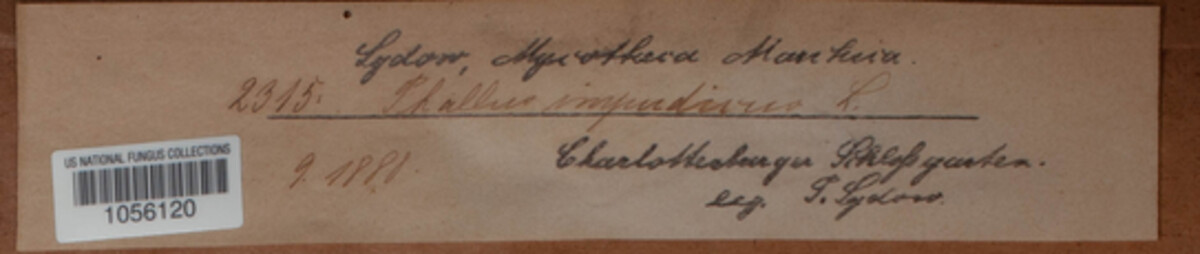 Sydow, Mycotheca Marchica.
2315. Phallus impudicus L.
9. 1888.
Charlottenburger Schloßgarten.
leg. P. Sydow.
US NATIONAL FUNGUS COLLECTIONS
1056120